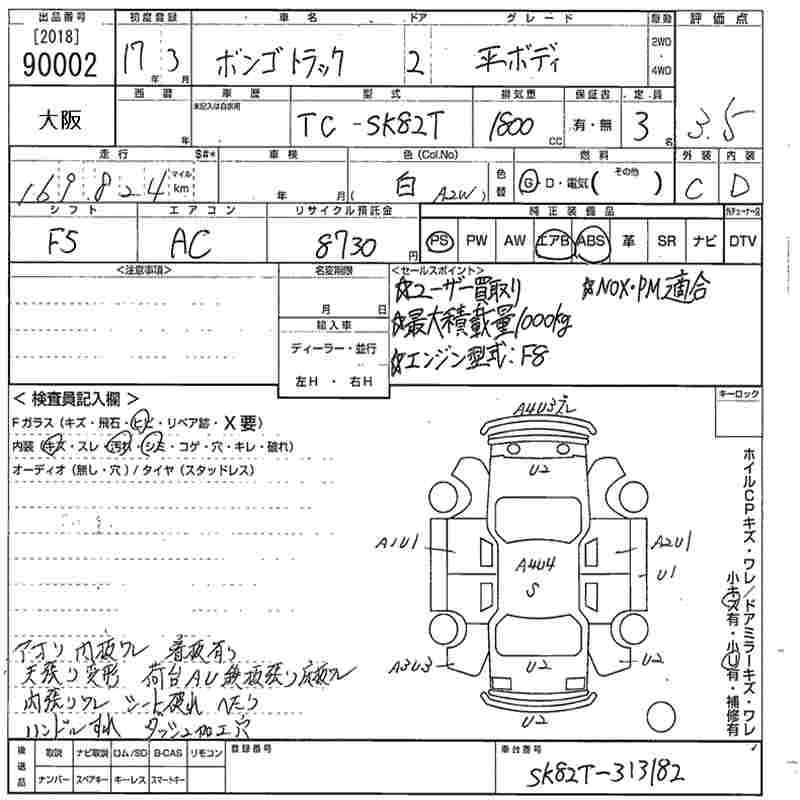 出品番号 初度登録 車名 ドア グレード 駆動 評価点
[2018]
90002
17年 3月 ボンゴトラック 2 平ボディ 2WD・4WD
大阪
西暦 車歴 型式 排気量 保証書 定員
未記入は自家用
年 TC-SK82T 1800cc 有・無 3名 3.5
走行 $#* 車検 色(Col.No) 燃料 外装 内装
169,824 マイル km 年 月 ( 白 A2W ) 色替 G・D・電気( その他 ) C D
シフト エアコン リサイクル預託金 純正装備品
F5 AC 8730円 PS PW AW エアB ABS 革 SR ナビ DTV
<注意事項> 名変期限 <セールスポイント>
月 日
☆ユーザー買取り ☆NOX・PM適合
☆最大積載量1000kg
☆エンジン型式:F8
輸入車
ディーラー・並行
左H ・ 右H
< 検査員記入欄 > キーロック
Fガラス(キズ・飛石・ヒビ・リペア跡・X要)
内装(キズ・スレ・汚れ・シミ・コゲ・穴・キレ・破れ)
オーディオ(無し・穴)/タイヤ(スタッドレス)
A4U3ワレ
U2
A1U1 A2U1
A4U4 U1
S
A3U3 U2 U2
U2
ホイルCPキズ・ワレ/ドアミラーキズ・ワレ
小キズ有・小U有・補修有
アオリ内板ワレ 看板有り
天張り変形 荷台AU鉄板張り床板ワレ
内張りワレ シート破れ ヘたり
ハンドルすれ ダッシュ加工穴
後送品 取説 ナビ取説 ロム/SD B-CAS リモコン 登録番号 車台番号
ナンバー スペアキー キーレス スマートキー
SK82T-313182